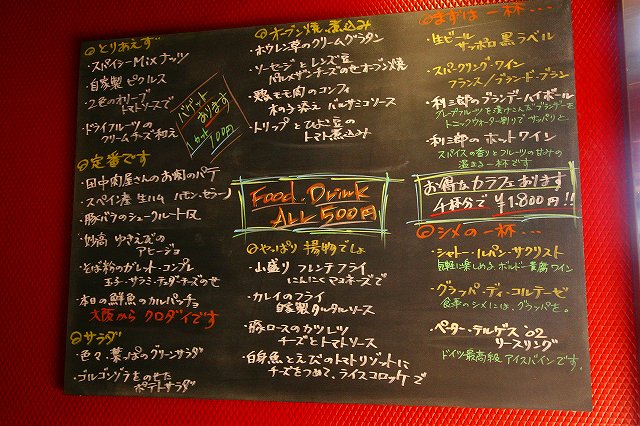 ◎とりあえず
・スパイシーMixナッツ
・自家製ピクルス
・2色のオリーブ
トマトソースで
・ドライフルーツの
クリームチーズ和え
バゲット
あります
100円
◎定番です
・田中肉屋さんのお肉のパテ
・スペイン産 生ハム ハモン・セラーノ
・豚バラのシュークルート風
・妙高 ゆきえびの
アヒージョ
・そば粉のガレット・コンプレ
玉子・サラミ・チェダーチーズのせ
・本日の鮮魚のカルパッチョ
大阪から クロダイです
◎サラダ
・色々葉っぱのグリーンサラダ
・ゴルゴンゾーラをのせた
ポテトサラダ
◎オーブン焼 煮込み
・ホウレン草のクリームグラタン
・ソーセージとレンズ豆
パルメザンチーズのせオーブン焼
・鶏モモ肉のコンフィ
木の子添え バルサミコソース
・トリップとひよこ豆の
トマト煮込み
Food. Drink
ALL 500円
◎やっぱり 揚物でしょ
・山盛り フレンチフライ
にんにくマヨネーズで
・カレイのフライ
自家製タルタルソース
・豚ロースのカツレツ
チーズとトマトソース
・白身魚とえびのトマトリゾットに
チーズをつめて、ライスコロッケで
◎まずは一杯...
・生ビール
サッポロ 黒ラベル
・スパークリング・ワイン
フランス/ブラン・ド・ブラン
・利三郎のブランデーハイボール
グレープフルーツを漬けこんだブランデーを
トニックウォーター割りでサッパリと
・利三郎の ホットワイン
スパイスの香りとフルーツの甘みの
温まる一杯です
お得なカラフェあります
4杯分で ¥1,800円!!
◎シメの一杯...
・シャトー・ルパン・サクリスト
気軽に楽しめる、ボルドー貴腐ワイン
・グラッパ・ディ・コルテーゼ
食事のシメには、グラッパを。
・ペーター・テルゲス '02
リースリング
ドイツ最高級 アイスバインです。